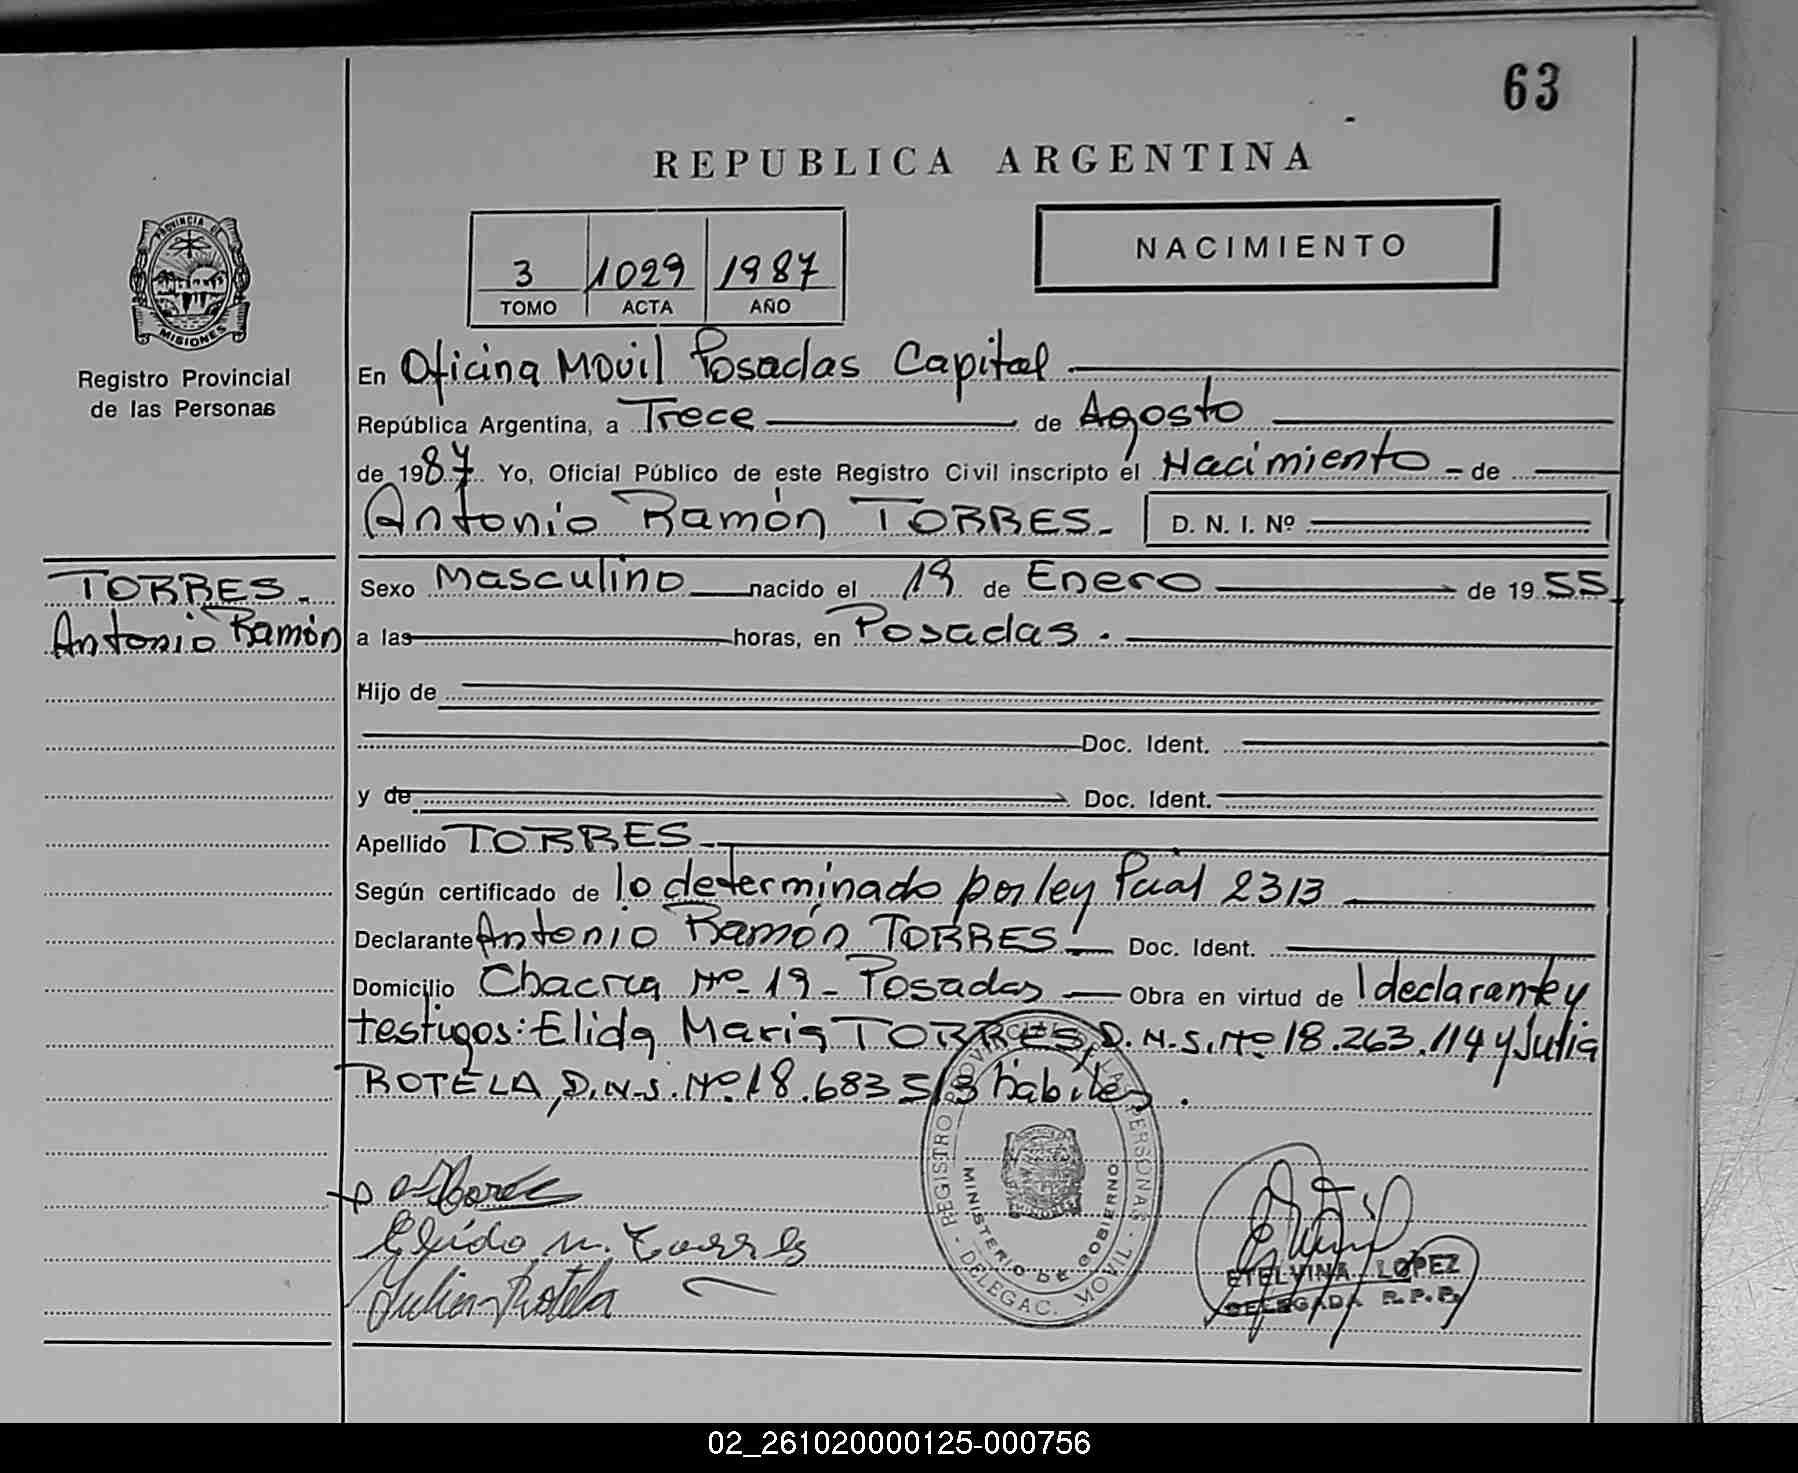 63
REPUBLICA ARGENTINA
PROVINCIA DE
MISIONES
Registro Provincial
de las Personas
NACIMIENTO
3 1029 1987
TOMO ACTA AÑO
En Oficina Movil Posadas Capital
República Argentina, a Trece de Agosto
de 1987 Yo, Oficial Público de este Registro Civil inscripto el Nacimiento - de
Antonio Ramón TORRES - D. N. I. Nº
TORRES -
Antonio Ramón
Sexo Masculino nacido el 19 de Enero de 1955
a las horas, en Posadas.
Hijo de
Doc. Ident.
y de Doc. Ident.
Apellido TORRES -
Según certificado de lo determinado por ley Pcial 2313
Declarante Antonio Ramón TORRES Doc. Ident.
Domicilio Chacra Nº 19 - Posadas Obra en virtud de l declarante y
testigos: Elida Maria TORRES, D.N.I. Nº 18.263.114 y Julia
ROTELA, D.N.I. Nº 18.683 513 hábiles.
REGISTRO PROVINCIAL DE LAS PERSONAS
MINISTERIO DE GOBIERNO
- DELEGAC. MOVIL -
Elida M. Torres
Julia Rotela
ETELVINA LOPEZ
DELEGADA R.P.P.
02_261020000125-000756